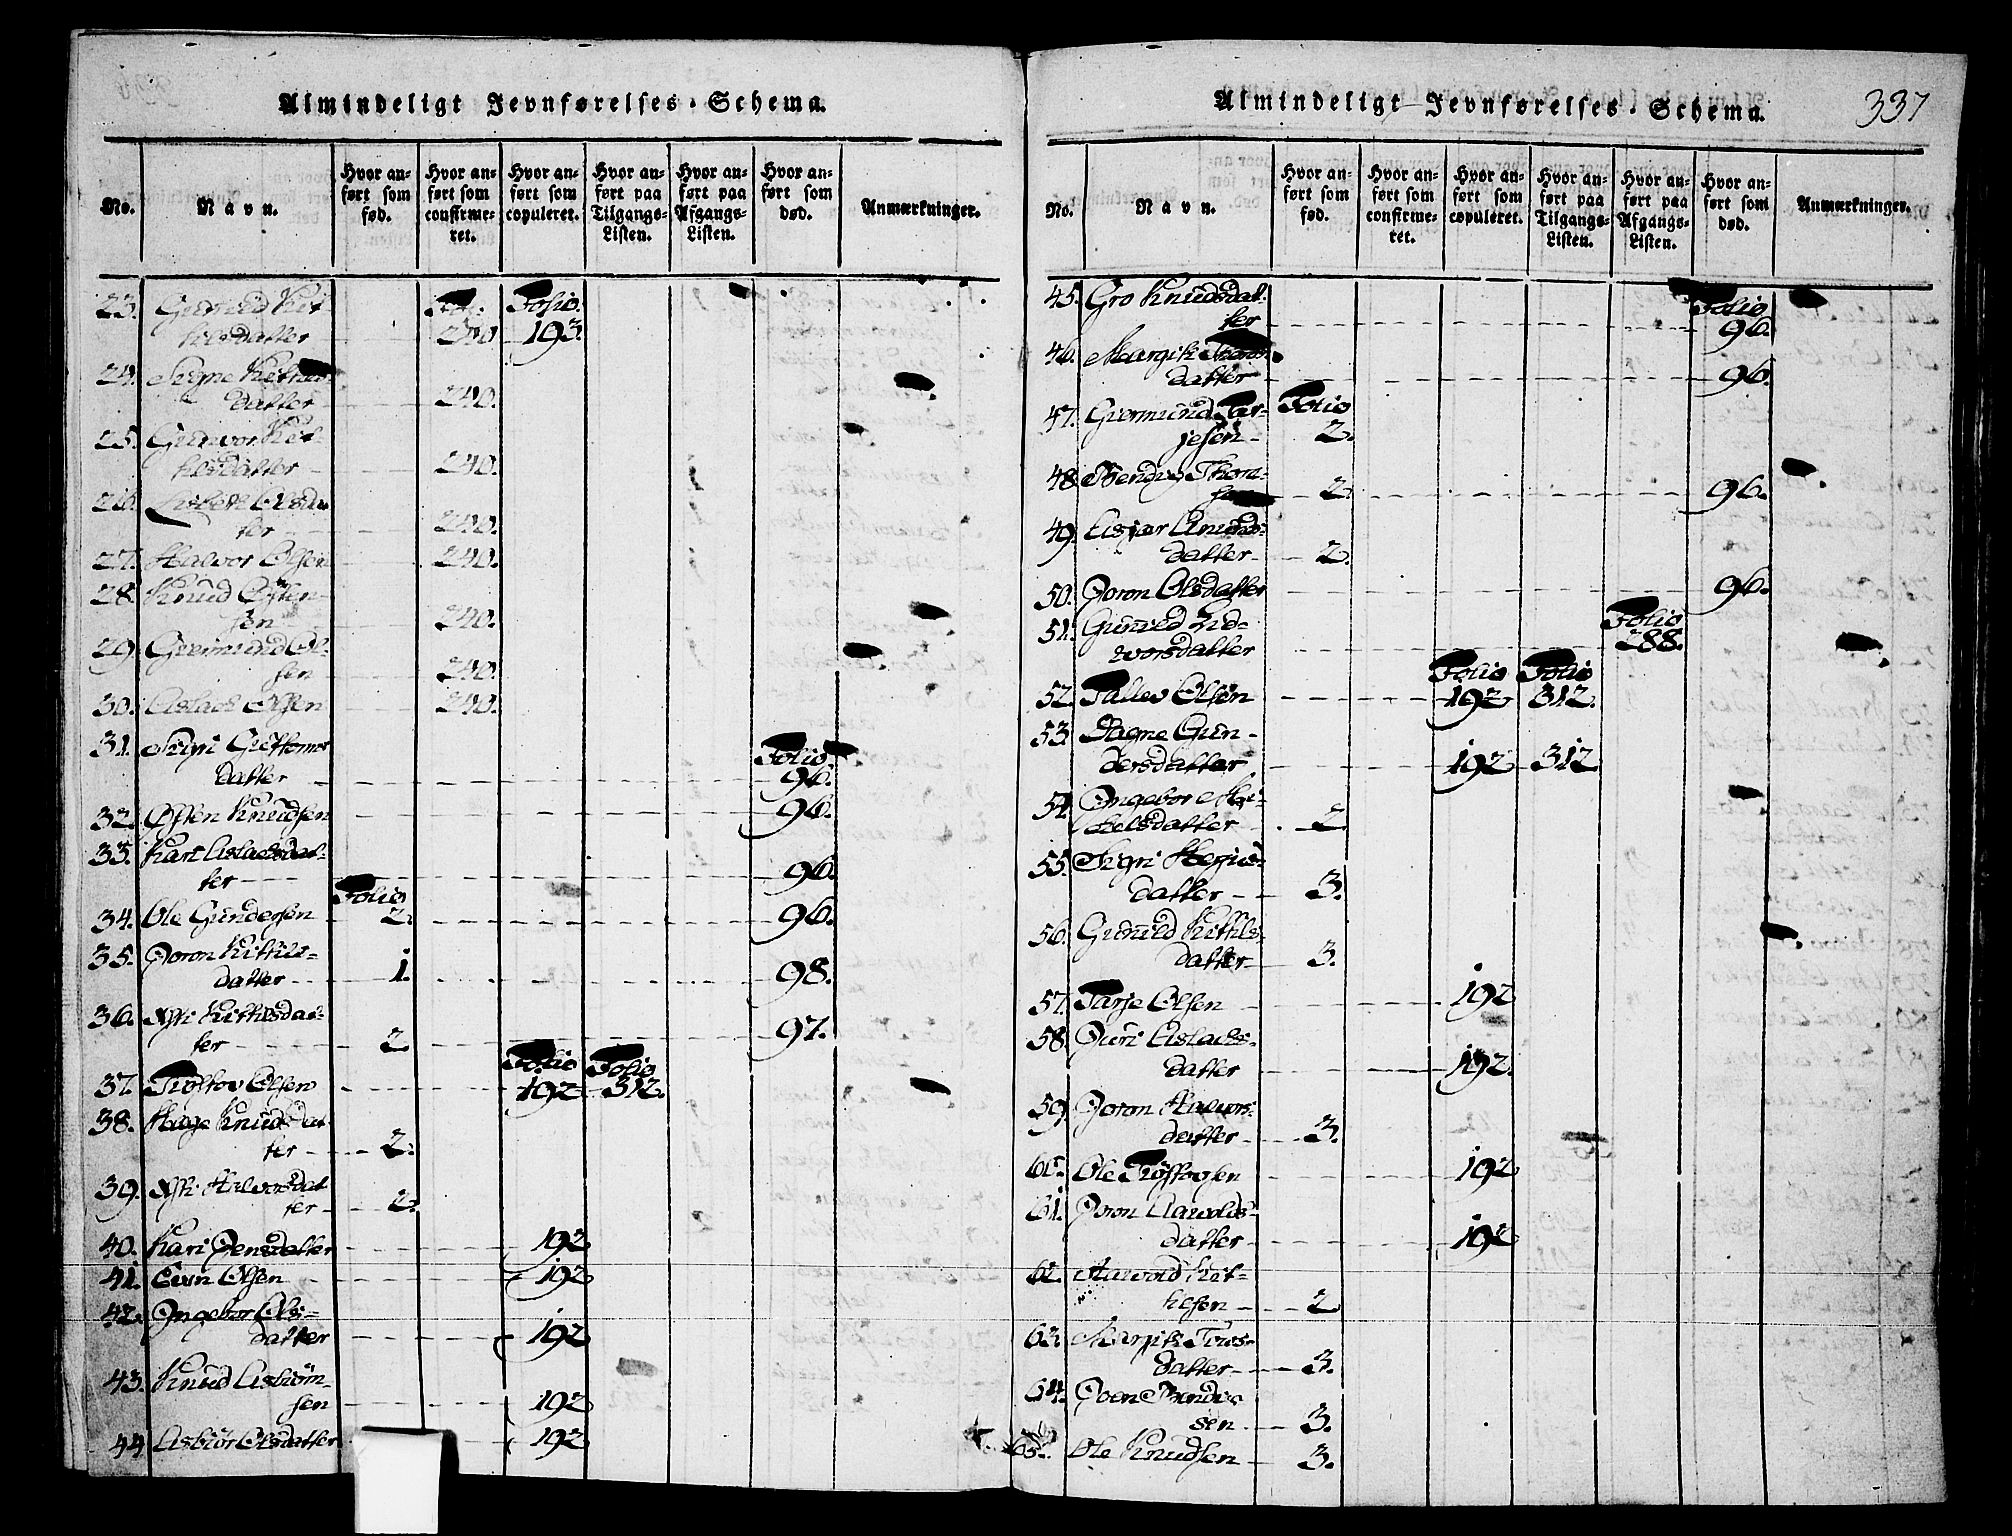 Almindeligt Jevnførelses-Schema.
No.
Navn.
Hvor an-
ført som
fød.
Hvor an-
ført som
confirme-
ret.
Hvor an-
ført som
copuleret.
Hvor an-
ført paa
Tilgangs-
Listen.
Hvor an-
ført paa
Afgangs-
Listen.
Hvor an-
ført som
død.
Anmærkninger.
Folio.
23. Gunild Kit-
tilsdatter 240 193.
24. Signe Kittils-
datter 240.
25. Gunvor Kit-
tilsdatter 240.
26. Lisbeth Olsdat-
ter 240.
27. Halvor Olsen 240.
28. Knud Østen-
sen 240.
29. Giermund Ol-
sen 240.
30. Aslach Olsen 240.
Folio
31. Sigri Guttorms
datter 96.
32. Østen Knudsen 96.
33. Kari Aslachsdat-
ter 96.
Folio
34. Ole Gundersen 2. 96.
35. Joron Kittils-
datter 1. 98.
36. Kittilsdat-
ter 2. 97.
Folio Folio
37. Olsen 192 312.
38. Knudsdat
ter 2.
39. Halvorsdat
ter 2.
40. Kari Jensdatter 192
41. Even Olsen 192
42. Ingebor Ols-
datter 192
43. Knud Asbiørn-
sen 192
44 Asbiør Olsdatter 192
Almindeligt Jevnførelses-Schema. 337
No.
Navn.
Hvor an-
ført som
fød.
Hvor an-
ført som
confirme-
ret.
Hvor an-
ført som
copuleret.
Hvor an-
ført paa
Tilgangs-
Listen.
Hvor an-
ført paa
Afgangs-
Listen.
Hvor an-
ført som
død.
Anmærkninger.
45. Gro Knudsdat- Folio
ter 96.
46. Margith
datter 96.
47. Giermund Tar- Folio
jesen 2.
48 Thom-
sen 2. 96.
49.
datter 2.
50. Joron Olsdatter 96.
51. Gunild Hal- Folio
vorsdatter 288.
Folio Folio
52. Tallev Olsen 192 312.
53 Dagne Gun-
dersdatter 192 312
54. Ingebor Mi-
kelsdatter 2.
55. Sigri
datter 3.
56. Gunild Kittils-
datter 3.
57. Tarje Olsen 192
58. Juri Aslachs-
datter 192.
59. Joron Halvors-
datter 3.
60. Ole 192
61. Joron Aavolds-
datter 192
62. Aavold Kit-
tilsen 2
63. Margith
datter 3.
64.
sen 3.
65. Ole Knudsen 3.